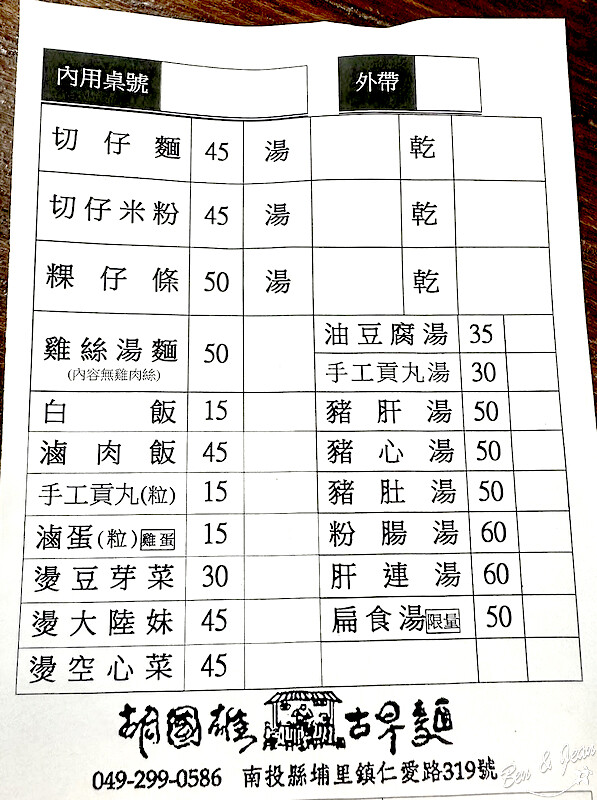 內用桌號 外帶
切仔麵 45 湯 乾
切仔米粉 45 湯 乾
粿仔條 50 湯 乾
雞絲湯麵 50
(內容無雞肉絲)
油豆腐湯 35
手工貢丸湯 30
白飯 15 豬肝湯 50
滷肉飯 45 豬心湯 50
手工貢丸(粒) 15 豬肚湯 50
滷蛋(粒)雞蛋 15 粉腸湯 60
燙豆芽菜 30 肝連湯 60
燙大陸妹 45 扁食湯限量 50
燙空心菜 45
胡國雄古早麵
049-299-0586 南投縣埔里鎮仁愛路319號
Ben & Jean